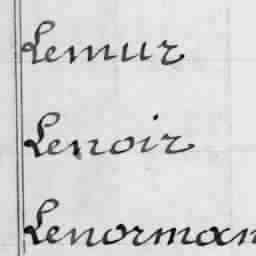 Lemur
Lenoir
Lenorman